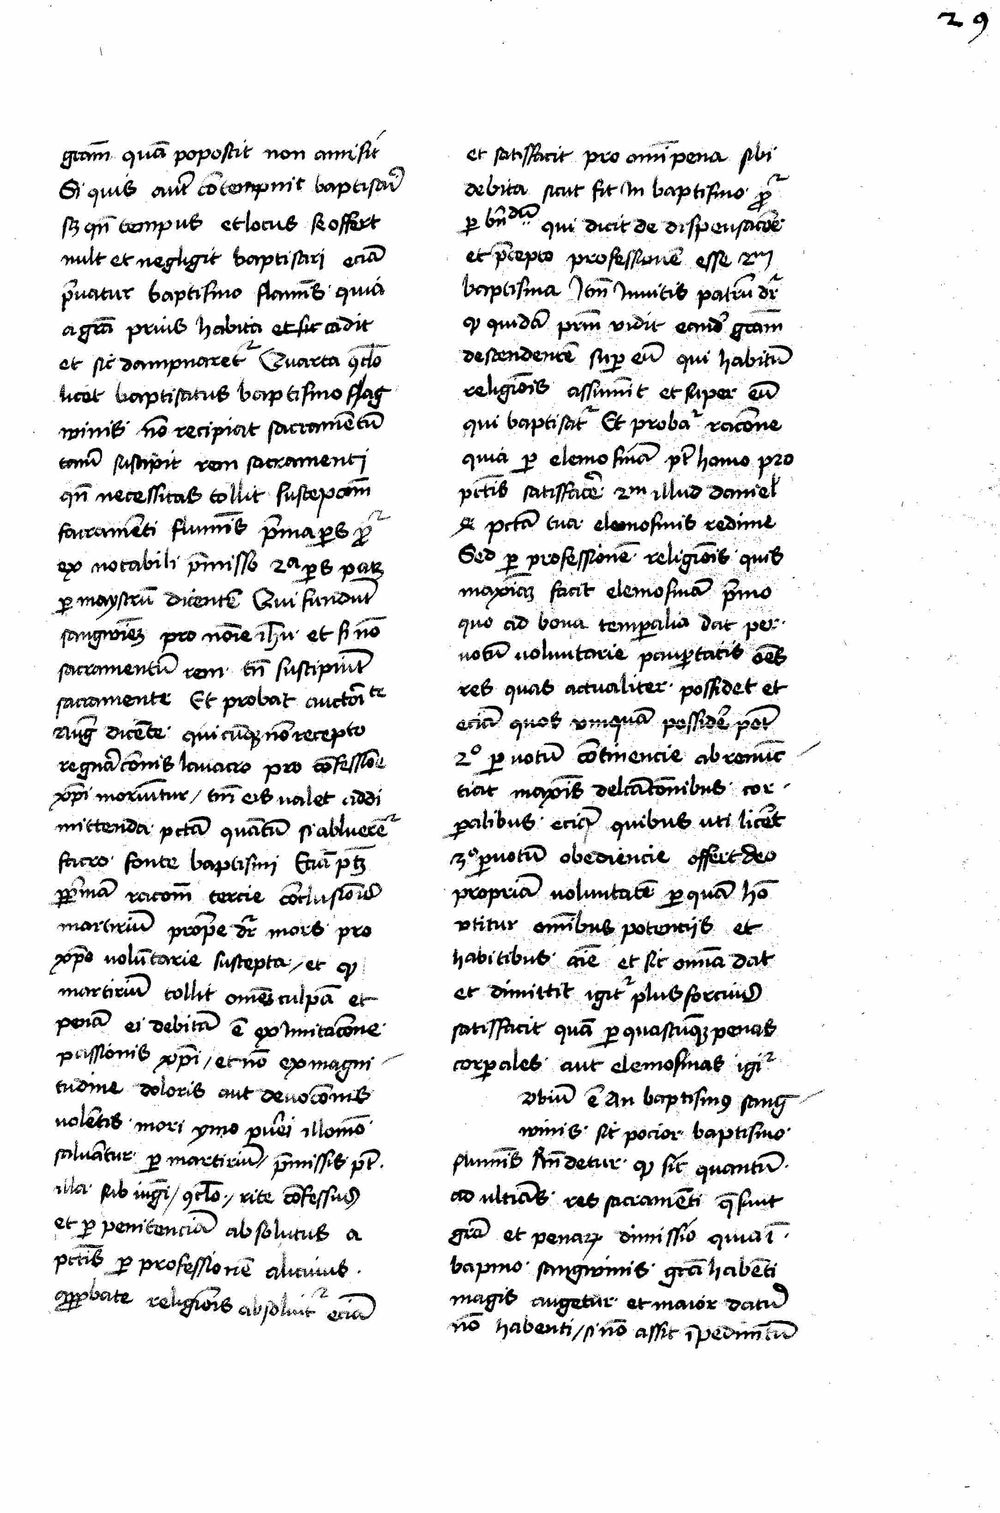 29
gratiam quam poposcit non amisit
Si quis autem contempnit baptisari
sed quando tempus et locus se offert
nult et negligit baptisari eciam
privatur baptismo flaminis quia
a gratia prius habita et sic cadit
et sic dampnaretur Quarta conclusio
licet baptisatus baptismo flag
winis non recipiat sacramentum
tamen suscipit rem sacramenti
quando necessitas tollit suscepcionem
sacramenti fluminis prima pars
ex notabili premisso 2a pars patet
per magistrum dicentem Qui fundunt
sangwinem pro nomine ihesu et si non
sacramentum rem tamen suscipiunt
sacramente Et probat auctoritate
Aug dicente quicumque non recepto
regeneracionis lavacro pro confessione
xpi moriuntur / tamen eis valet addi
mittenda peccata quantum si abluerentur
sacro fonte baptismi Eciam patet
per primam racionem tercie conclusionis
martirium proprie dicitur mors pro
xpo voluntarie suscepta / et quod
martirium tollit omnem culpam et
penam ei debitam est ex imitacione
passionis xpi / et non ex magni
tudine doloris aut devocionis
volentis mori ymo pueri illo modo
salvantur per martirium / premissis patet
illa sub iungitur / conclusio / rite confessus
et per penitenciam absolutus a
peccatis per professionem alicuius
approbate religionis absolvitur eciam
et satisfacit pro omni pena sibi
debita sicut fit in baptismo
per bernhardum qui dicit de dispensacione
et precepto professionem esse 2m
baptisma Item in vitis patrum dicitur
quod quidam primum vidit eandem gratiam
descendentem super eum qui habitum
religionis assumit et super eum
qui baptisatur Et probatur racione
quia per elemosinam potest homo pro
peccatis satisfacere 2m illud daniel
4 peccata tua elemosinis redime
Sed per professionem religionis quis
maximam facit elemosinam primo
quo ad bona temporalia dat per
votum voluntarie paupertatis omnes
res quas actualiter possidet et
eciam quos unquam possidere potest
2o per votum continencie abrenunc
tiat maximis delectacionibus cor
poralibus eciam quibus uti liceret
3o per votum obediencie offert deo
propriam voluntatem per quam homo
utitur omnibus potenciis et
habitibus anime et sic omnia dat
et dimittit igitur plus forcius
satisfacit quam per quascumque penas
corporales aut elemosinas igitur
Dubium est An baptismus sang
winis sit pocior baptismo
fluminis Respondetur quod sic quantum
ad ultimas res sacramenti que sunt
gratia et penarum dimissio quia in
baptismo sangwinis gratia habenti
magis augetur et maior datur
non habenti / si non assit impedimentum